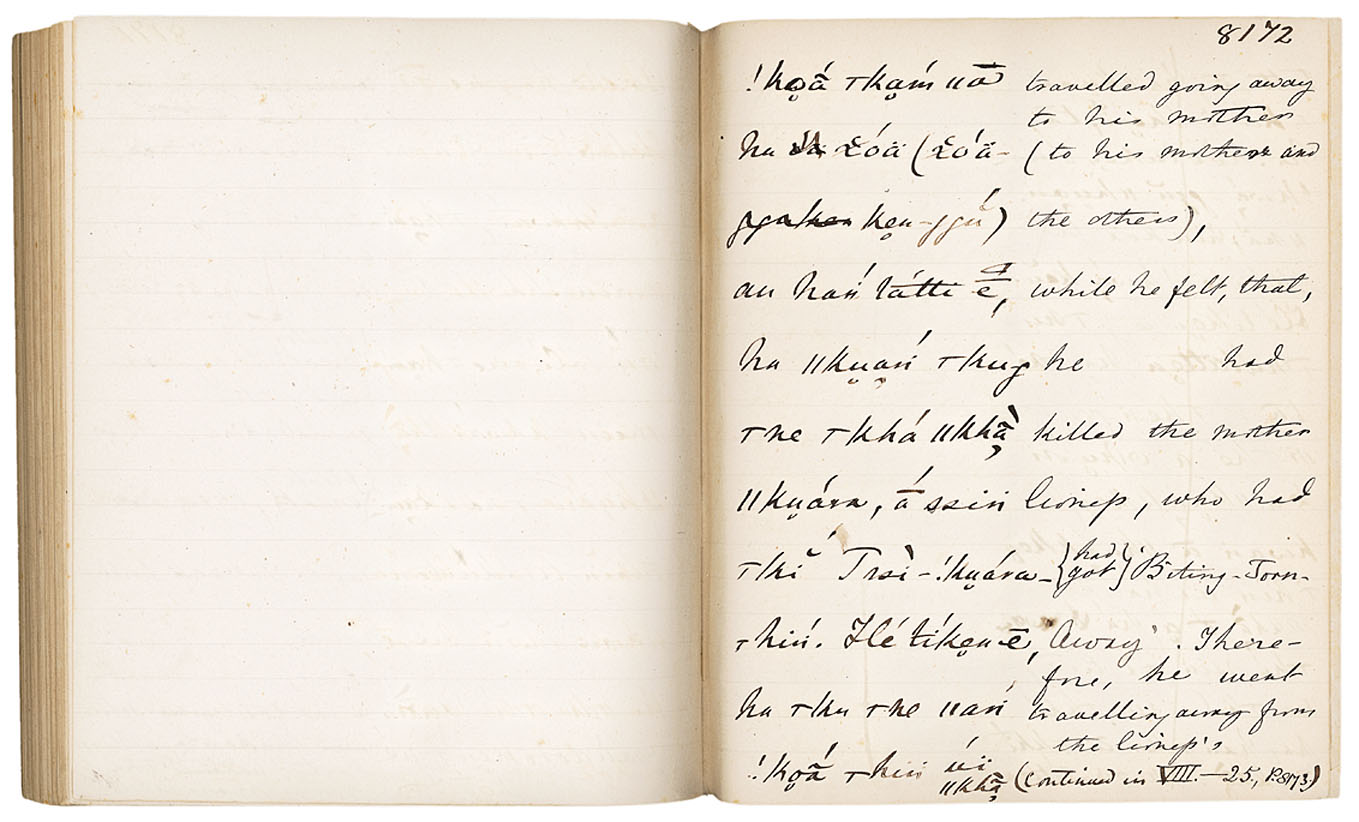 8172
!kọā́ ⊤kạḿ ǁā travelled going away
to his mother
ha χóä (χóä- (to his mother and
kẹn-ggú) the others),
au hań tátti ē, while he felt, that,
ha ǁkụạń ⊤kug he had
⊤ne ⊤khá ǁkhā̀ killed the mother
ǁkụára, ā́ ssiń lioness, who had
⊤kĭ́ Tssì-!kụára- {had got} 'Biting-Torn-
⊤hiń. Hé tíkẹn ē, Away'. There-
fore, he went
ha ⊤ku ⊤ne ǁań travelling away from
the lioness's
!kọā́ ⊤hiń ǁkhā̀ (Continued in VIII.—25, P.8173)